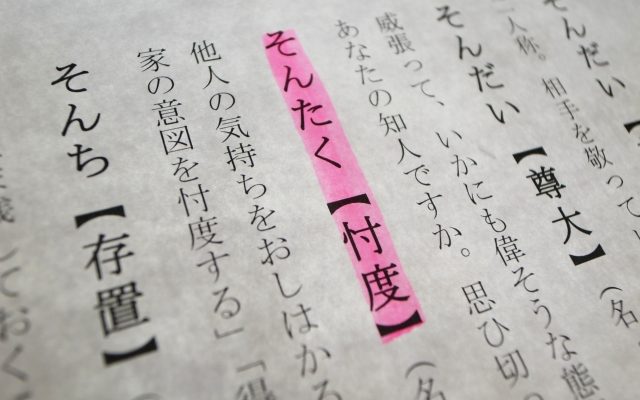 そんだい【
二人称。相手を敬って
そんだい【尊大】(名
威張って、いかにも偉そうな態
あなたの知人ですか。思ひ切
そんたく【忖度】(名
他人の気持ちをおしはかる
家の意図を忖度する」「得
そんち【存置】
しておく